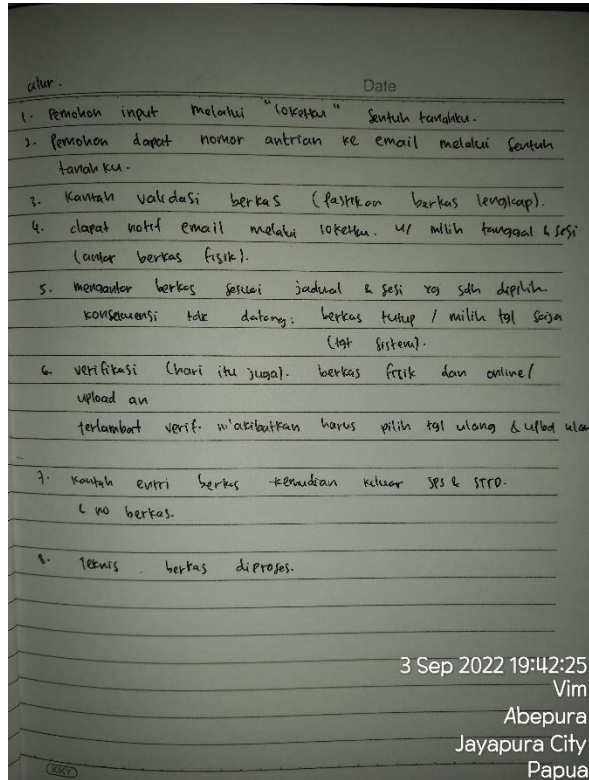 alur.
Date
1. Pemohon input melalui "loketku" Sentuh tanahku.
2. Pemohon dapat nomor antrian ke email melalui Sentuh
tanah ku.
3. Kantah validasi berkas (pastikan berkas lengkap).
4. dapat notif email melalui loketku. u/ milih tanggal & sesi
(antar berkas fisik).
5. mengantar berkas sesuai jadual & sesi yg sdh dipilih
konsekuensi tdk datang: berkas tutup / milih tgl saja
(tgt sistem).
6. verifikasi (hari itu juga). berkas fisik dan online/
upload an
terlambat verif. m'akibatkan harus pilih tgl ulang &
7. Kantah entri berkas kemudian keluar SPS & STTD.
& no berkas.
8. Teknis. berkas diproses.
KKY
3 Sep 2022 19:42:25
Vim
Abepura
Jayapura City
Papua